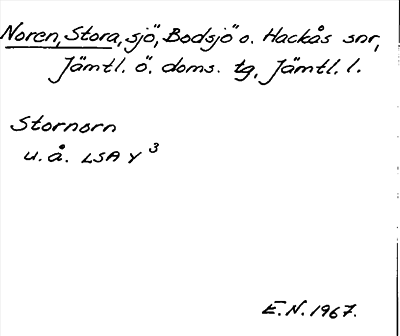 Noren, Stora, sjö, Bodsjö o. Hackås snr,
Jämtl. ö. doms. tg, Jämtl. l.
Stornorn
u. å. LSA Y 3
E.N. 1967.